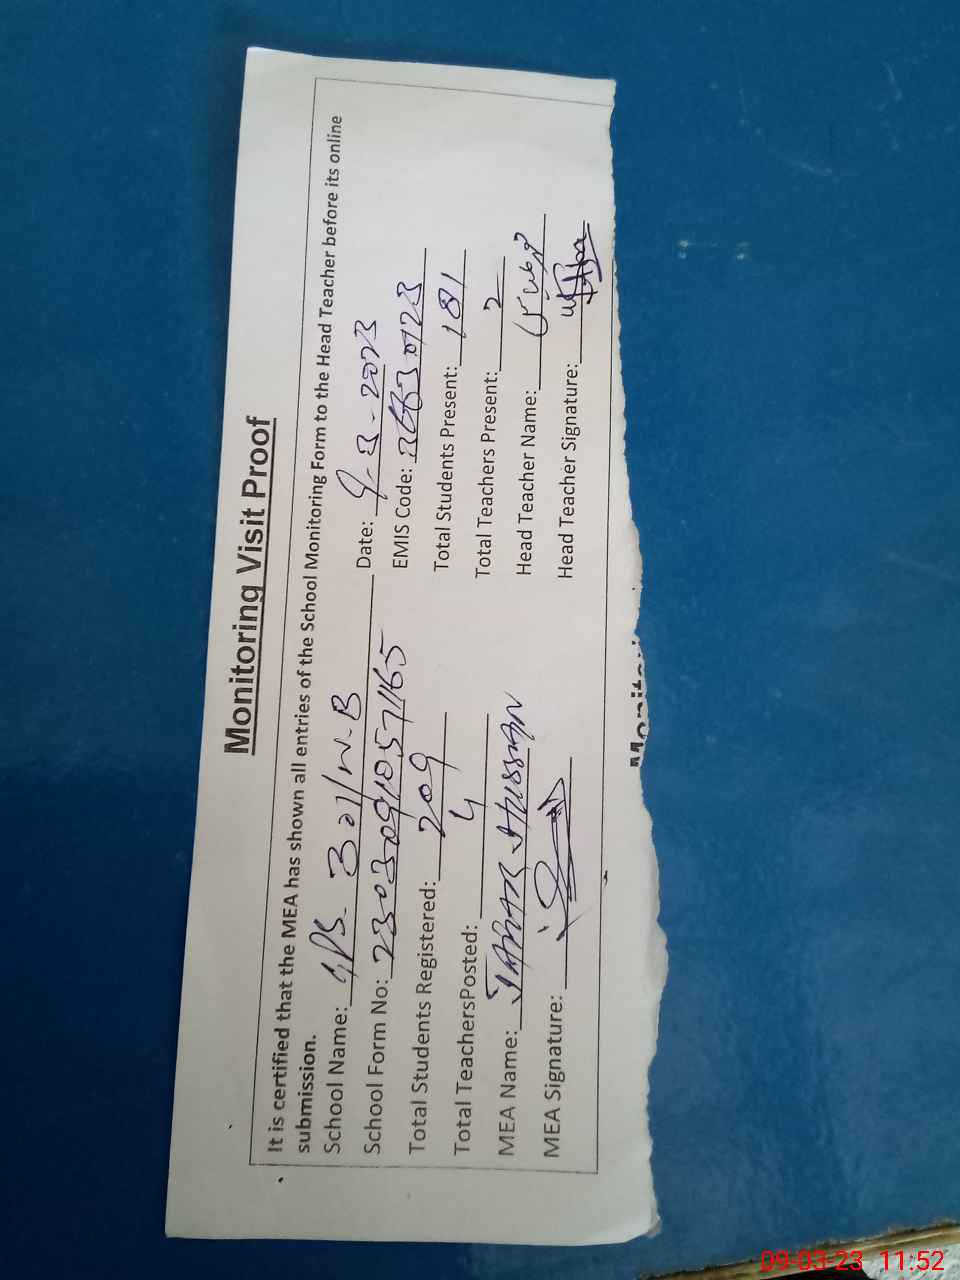 Monitoring Visit Proof
It is certified that the MEA has shown all entries of the School Monitoring Form to the Head Teacher before its online
submission.
School Name: GPS. 301/W.B Date: 9-3-2023
School Form No: EMIS Code:
Total Students Registered: 209 Total Students Present: 181
Total TeachersPosted: 4 Total Teachers Present: 2
MEA Name: HUSSAIN Head Teacher Name:
MEA Signature: Head Teacher Signature:
09-03-23 11:52